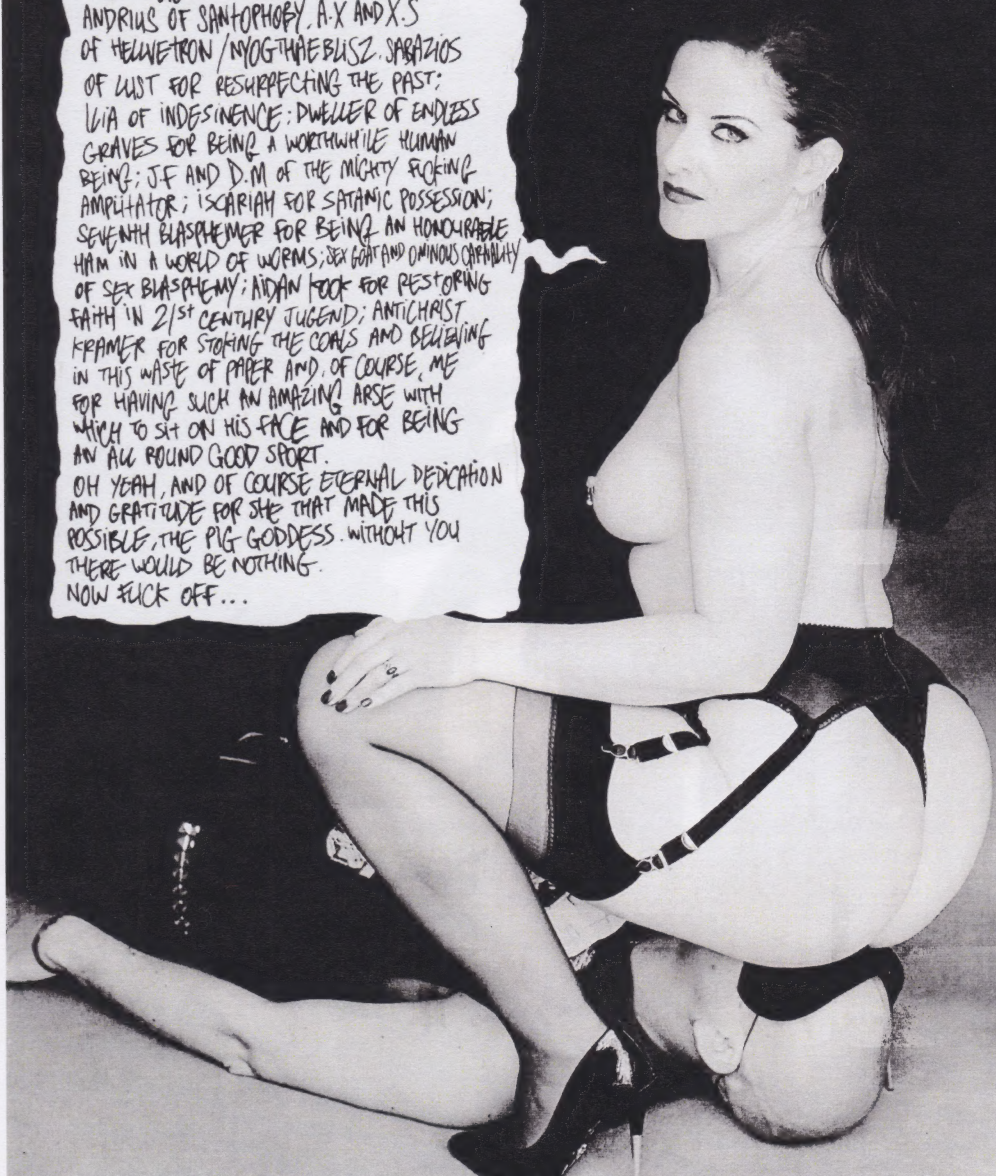 ANDRIUS OF SANTOPHOBY, A.X AND X.S
OF HELLVETRON/NYOGTHAEBLISZ, SABAZIOS
OF LUST FOR RESURRECTING THE PAST;
ILIA OF INDESINENCE; DWELLER OF ENDLESS
GRAVES FOR BEING A WORTHWHILE HUMAN
BEING; J.F AND D.M OF THE MIGHTY FUCKING
AMPUTATOR; ISCARIAH FOR SATANIC POSSESSION;
SEVENTH BLASPHEMER FOR BEING AN HONOURABLE
HAM IN A WORLD OF WORMS; SEX GOAT AND OMINOUS CARNALITY
OF SEX BLASPHEMY; AIDAN KOCK FOR RESTORING
FAITH IN 21st CENTURY JUGEND; ANTICHRIST
KRAMER FOR STOKING THE COALS AND BELIEVING
IN THIS WASTE OF PAPER AND, OF COURSE, ME
FOR HAVING SUCH AN AMAZING ARSE WITH
WHICH TO SIT ON HIS FACE AND FOR BEING
AN ALL ROUND GOOD SPORT.
OH YEAH, AND OF COURSE ETERNAL DEDICATION
AND GRATITUDE FOR SHE THAT MADE THIS
POSSIBLE, THE PIG GODDESS. WITHOUT YOU
THERE WOULD BE NOTHING.
NOW FUCK OFF...